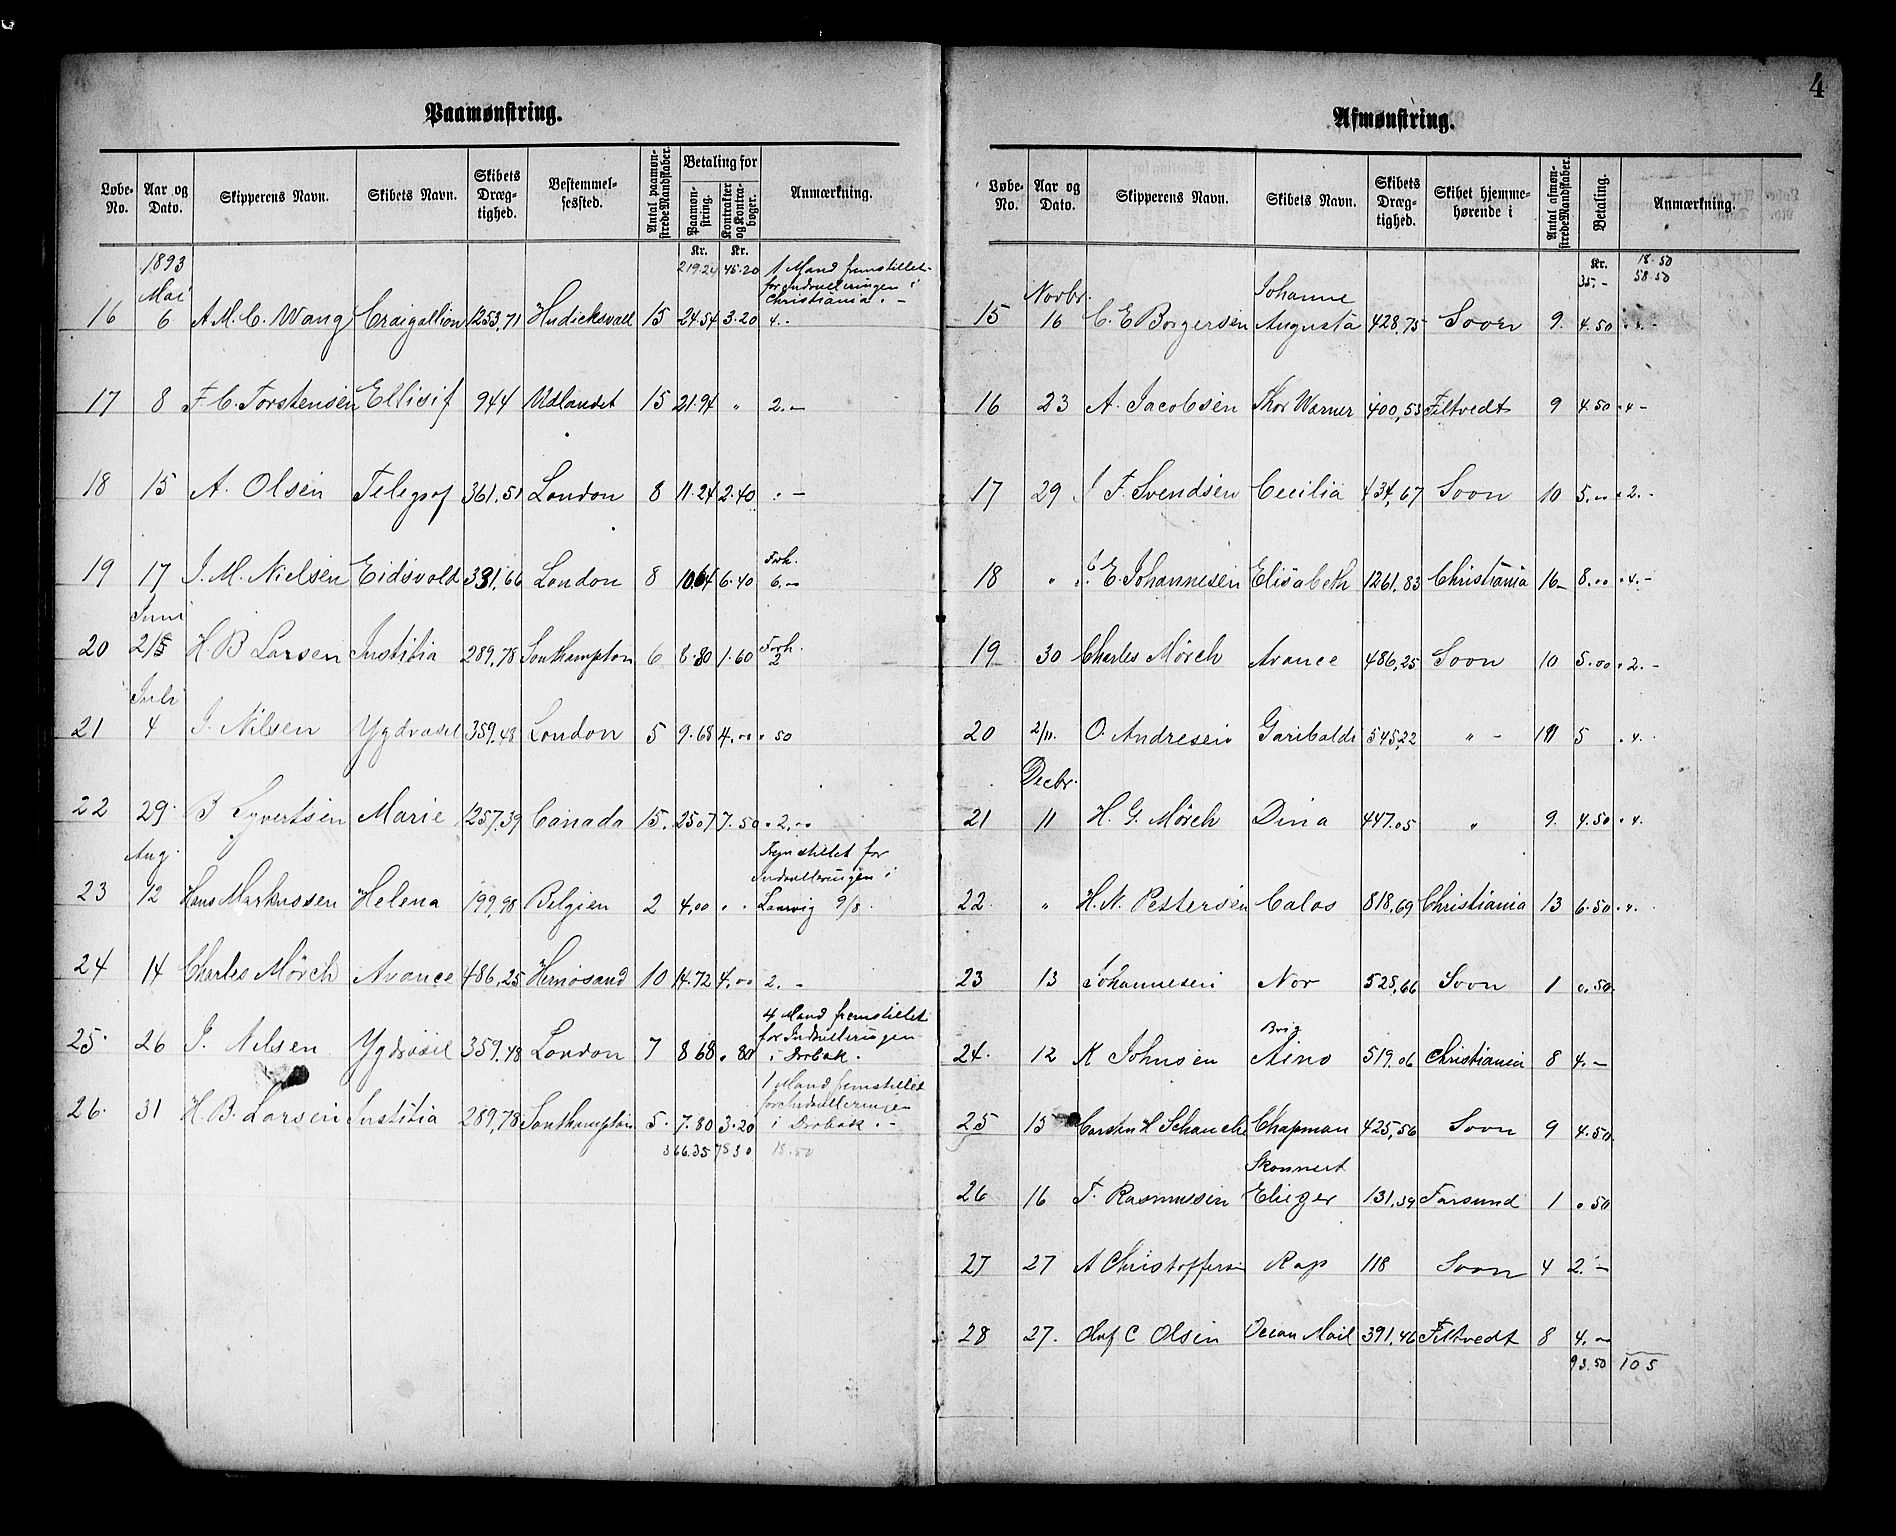 4
Paamønstring.
Løbe-No. | Aar og Dato. | Skipperens Navn. | Skibets Navn. | Skibets Dræg-tighed. | Bestemmel-sessted. | Antal paamøn-strede Mandskaber. | Betaling for Paamøn-string. | Kontrakter og Kontra-bøger. | Anmærkning.
1893 | Kr. 219.24 | Kr. 45.20 | 1 Mand fremstillet
Mai | for Indrulleringen i
Christiania. -
16 | 6 | A. M. C. Wang | Craigallion | 1253,71 | Hudicksvall | 15 | 24.54 | 3.20 | 4.-
17 | 8 | F. C. Torstensen | Ellisif | 944 | Udlandet | 15 | 21.94 | " | 2.-
18 | 15 | A. Olsen | Telegraf | 361,51 | London | 8 | 11.24 | 2.40 | . -
Forh.
19 | 17 | J. M. Nielsen | Eidsvold | 331,66 | London | 8 | 10.64 | 6.40 | 6.-
Juni
20 | 215 | H B Larsen | Justitia | 289,78 | Southampton | 6 | 8.80 | 1.60 | Forh. 2
Juli
21 | 4 | J. Nilsen | Ygdrasil | 359,48 | London | 5 | 9.68 | 4,00 | . 50
22 | 29. | B Syvertsen | Marie | 1257,39 | Canada | 15. | 25.07 | 7.50 | . 2,-
Aug. | Fremstillet for
Indrulleringen i
23 | 12 | Hans Markussen | Helena | 199,98 | Belgien | 2 | 4,00 | . . | Laurvig 9/8.
24 | 14 | Charles Mörch | Avance | 486,25 | Hernösand | 10 | 14.72 | 4,00 | 2. -
4 Mand fremstillet
for Indrulleringen
25. | 26 | J. Nilsen | Ygdrasil | 359,48 | London | 7 | 8 68 | . 80 | i Drøbak. -
1 Mand fremstillet
for Indrulleringen
26. | 31 | H. B. Larsen | Justitia | 289,78 | Southampton | 5. | 7.80 | 3.20 | i Drøbak. -
366.35 | 75 30 | 18.50
Afmønstring.
Løbe-No. | Aar og Dato. | Skipperens Navn. | Skibets Navn. | Skibets Dræg-tighed. | Skibet hjemme-hørende i | Antal afmøn-strede Mandskaber. | Betaling. | Anmærkning.
Kr. 35.- | 18.50
58.50
Novbr. | Johanne
15 | 16 | C. E Borgersen | Augusta | 428,75 | Soon | 9. | 4.50 | . . -
16 | 23 | A. Jacobsen | Thor Warner | 400,53 | Filtvedt | 9 | 4.50 | . 4 -
17 | 29 | J F. Svendsen | Cecilia | 434,67 | Soon | 10 | 5.00 | . 2. -
18 | " | C. E Johannesen | Elisabeth | 1261,83 | Christiania | 16- | 8.00 | . 4. -
19 | 30 | Charles Mörch | Avance | 486,25 | Soon | 10 | 5.00 | . 2. -
20 | 2/11. | O. Andresen | Garibaldi | 545,22 | " - | 11 | 5 | . 4.
Decbr.
21 | 11 | H. G. Mörch | Dina | 447.05 | " | 9. | 4.50 | . 4.
22. | " | H. N. Pettersen | Calas | 818,69 | Christiania | 13 | 6.50 | . 4.
23 | 13 | Johannesen | Nor | 525,66 | Soon | 1 | 0,50.
Brig
24. | 12 | K Johnsen | Aino | 519,06 | Christiania | 8 | 4.-
25 | 15 | Carsten H Schanche | Chapman | 425,56 | Soon | 9 | 4.50.
Skonnert
26 | 16 | T. Rasmussen | Elieger | 131,39 | Farsund | 1 | 0 50
27 | 27 | A Christoffersen | Rap | 118 | Soon | 4 | 2.-
28 | 27. | Oluf C Olsen | Ocean Mail | 391,46 | Filtvedt | 8 | 4.-
93.50 | 105